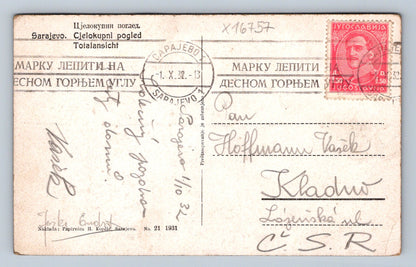 Цјелокупни поглед
Sarajevo. Cjelokupni pogled
Totalansicht
X16757
САРАЈЕВО
-1. X. 32.-13
SARAJEVO 1
МАРКУ ЛЕПИТИ НА
ДЕСНОМ ГОРЊЕМ УГЛУ
МАРКУ ЛЕПИТИ
ДЕСНОМ ГОРЊЕМ
ЈУГОСЛАВИЈА
JUGOSLAVIJA
Sarajevo 1/10 32
pozdrav
Vašek
Pan
Hoffmann Vašek
Kladno
Lázeňská ul.
Č. S. R.
Naklada: Papirnica H. Kopčić, Sarajevo. No. 21 1931